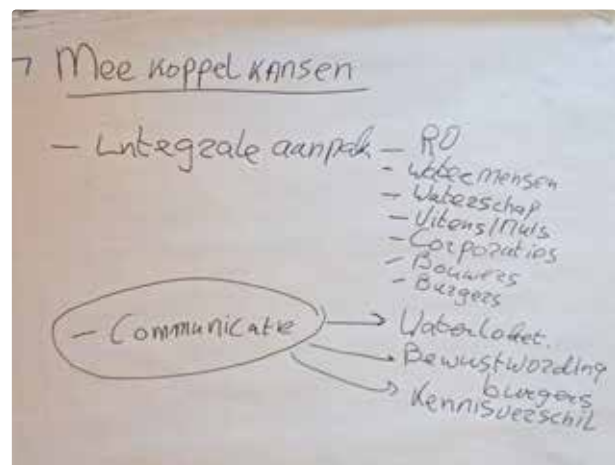 Mee koppel kansen
- Integrale aanpak - RO
- Watermensen
- Waterschap
- Vitens/Nuts
- Corporaties
- Bouwers
- Burgers
- Communicatie → Waterloket.
→ Bewustwording
burgers
→ Kennisverschil